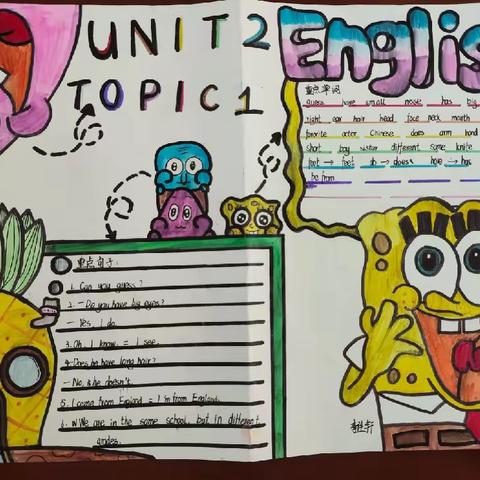 UNIT2
TOPIC1
English
重点单词
guess have small nose has big
right ear hair head face neck mouth
favorite actor Chinese does arm hand
short boy sister different some knife
foot → feet do → does have → has
be from
重点句子:
1. Can you guess?
2. — Do you have big eyes?
— Yes, I do.
3. Oh, I know. = I see.
4. — Does he have long hair?
— No, he doesn't.
5. I come from England = I'm from England.
6. We are in the same school, but in different
grades.